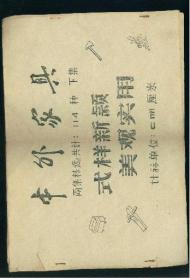 中外家具
两集精选共计：114种 下集
式样新颖
美观实用
计祘单位：cm厘米